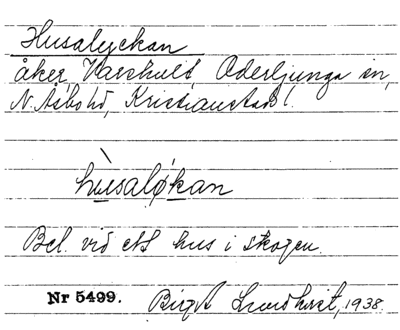 Husalyckan
åker, Varshult Oderljunga sn,
N. Åsbo hd, Kristianstad l.
hùsaløkan
Bel. vid ett hus i skogen.
Nr 5499. Birgit Lundkvist, 1938.